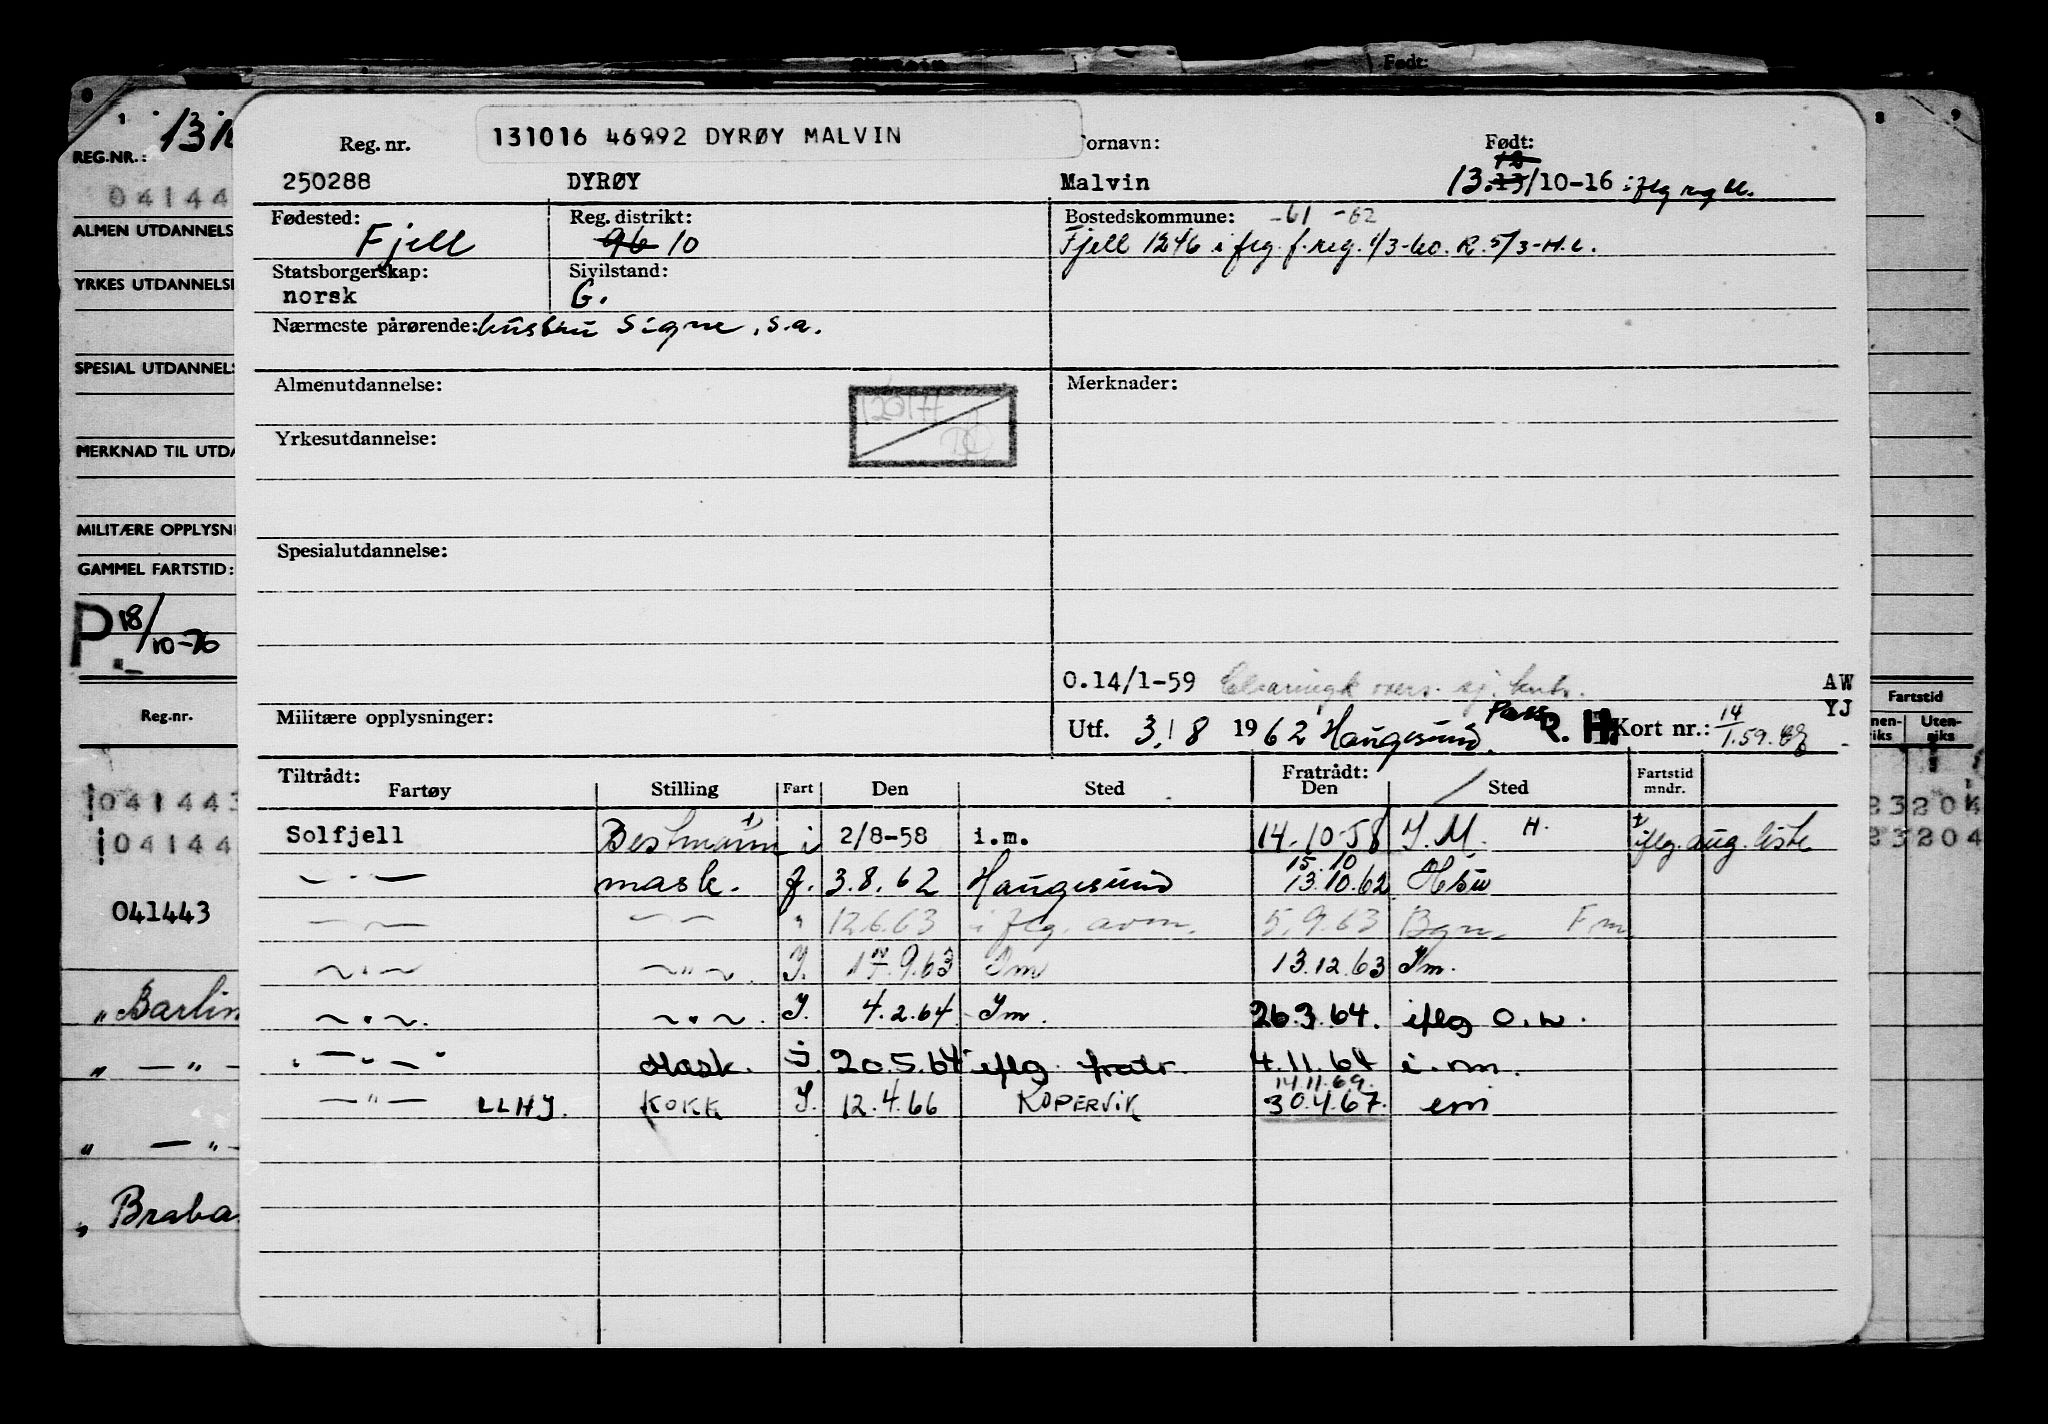 131016 46992 DYRØY MALVIN
Reg. nr. Fornavn: Født:
250288 DYRØY Malvin 13. 13/10-16 iflg
Fødested: Fjell
Reg. distrikt: 96 10
Bostedskommune: -61 -62
Fjell 1246 iflg. f. reg. 1/3-60. R. 5/3-H.L.
Statsborgerskap: norsk
Sivilstand: G.
Nærmeste pårørende: hustru Signe, s.a.
Almenutdannelse:
Merknader:
Yrkesutdannelse:
Spesialutdannelse:
O.14/1-59 AW
YJ
Militære opplysninger:
Utf. 3/8 1962 Haugesund. Pass R. H. Kort nr.: 14/1.59.
Tiltrådt: Fratrådt:
Fartøy Stilling Fart Den Sted Den Sted Fartstid mndr.
Solfjell Bestmann i 2/8-58 i.m. 14.10.58 I.M. H. iflg. aug. liste
— " — mask. f. 3.8.62 Haugesund 15.10 13.10.62 Hsu
— — — — " 12.6.63 iflg. avm. 5.9.63 Bgn. F.m
— " — — " — I. 17.9.63 Im 13.12.63 Im.
— " — — " — I. 4.2.64 Im. 26.3.64. iflg O.W.
— " — Mask. i 20.5.64 iflg. fratr. 4.11.64 i.m.
— " — LLHJ. KOKK I. 12.4.66 KOPERVIK 14.11.69. 30.4.67. em
1 1310
REG.NR.:
04144
ALMEN UTDANNELS
YRKES UTDANNELSE
SPESIAL UTDANNELS
MERKNAD TIL UTDA
MILITÆRE OPPLYSNI
GAMMEL FARTSTID:
P 18/10-76
Reg.nr.
041443
04144
041443
" Barlin
" — " —
" — " —
" Braba
Født:
8 9
Fartstid
nen-riks Uten-riks
23204
23204